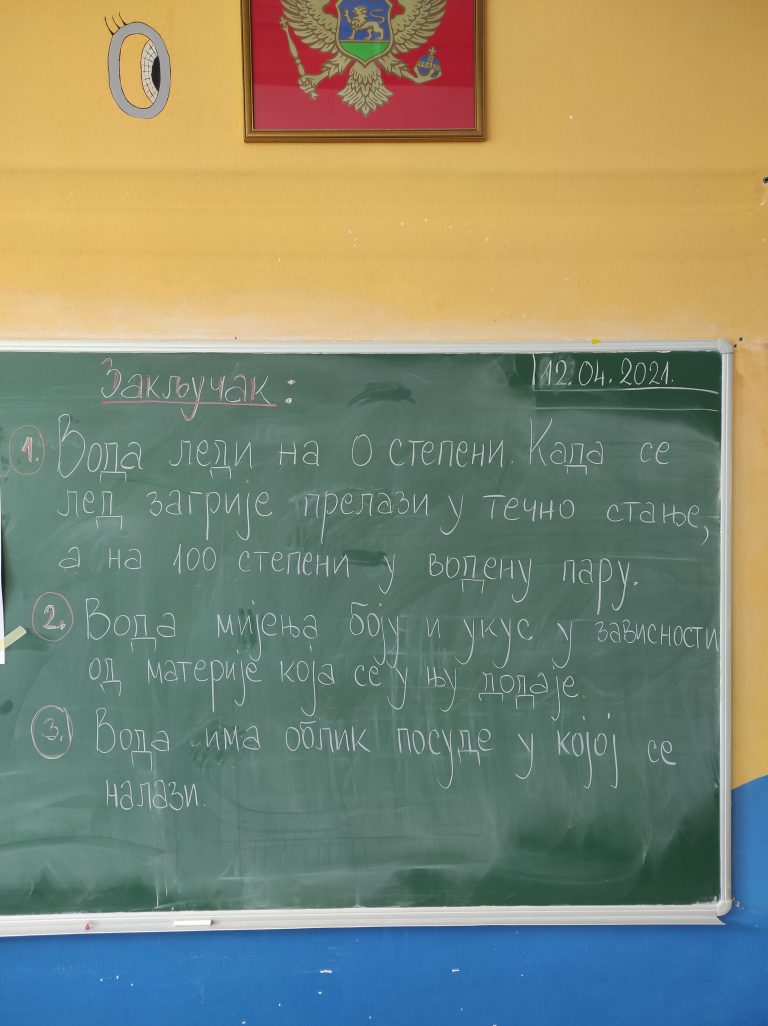 Закључак:
12.04.2021.
1. Вода леди на 0 степени. Када се
лед загрије прелази у течно стање,
а на 100 степени у водену пару.
2. Вода мијења боју и укус у зависности
од материје која се у њу додаје.
3. Вода има облик посуде у којој се
налази.